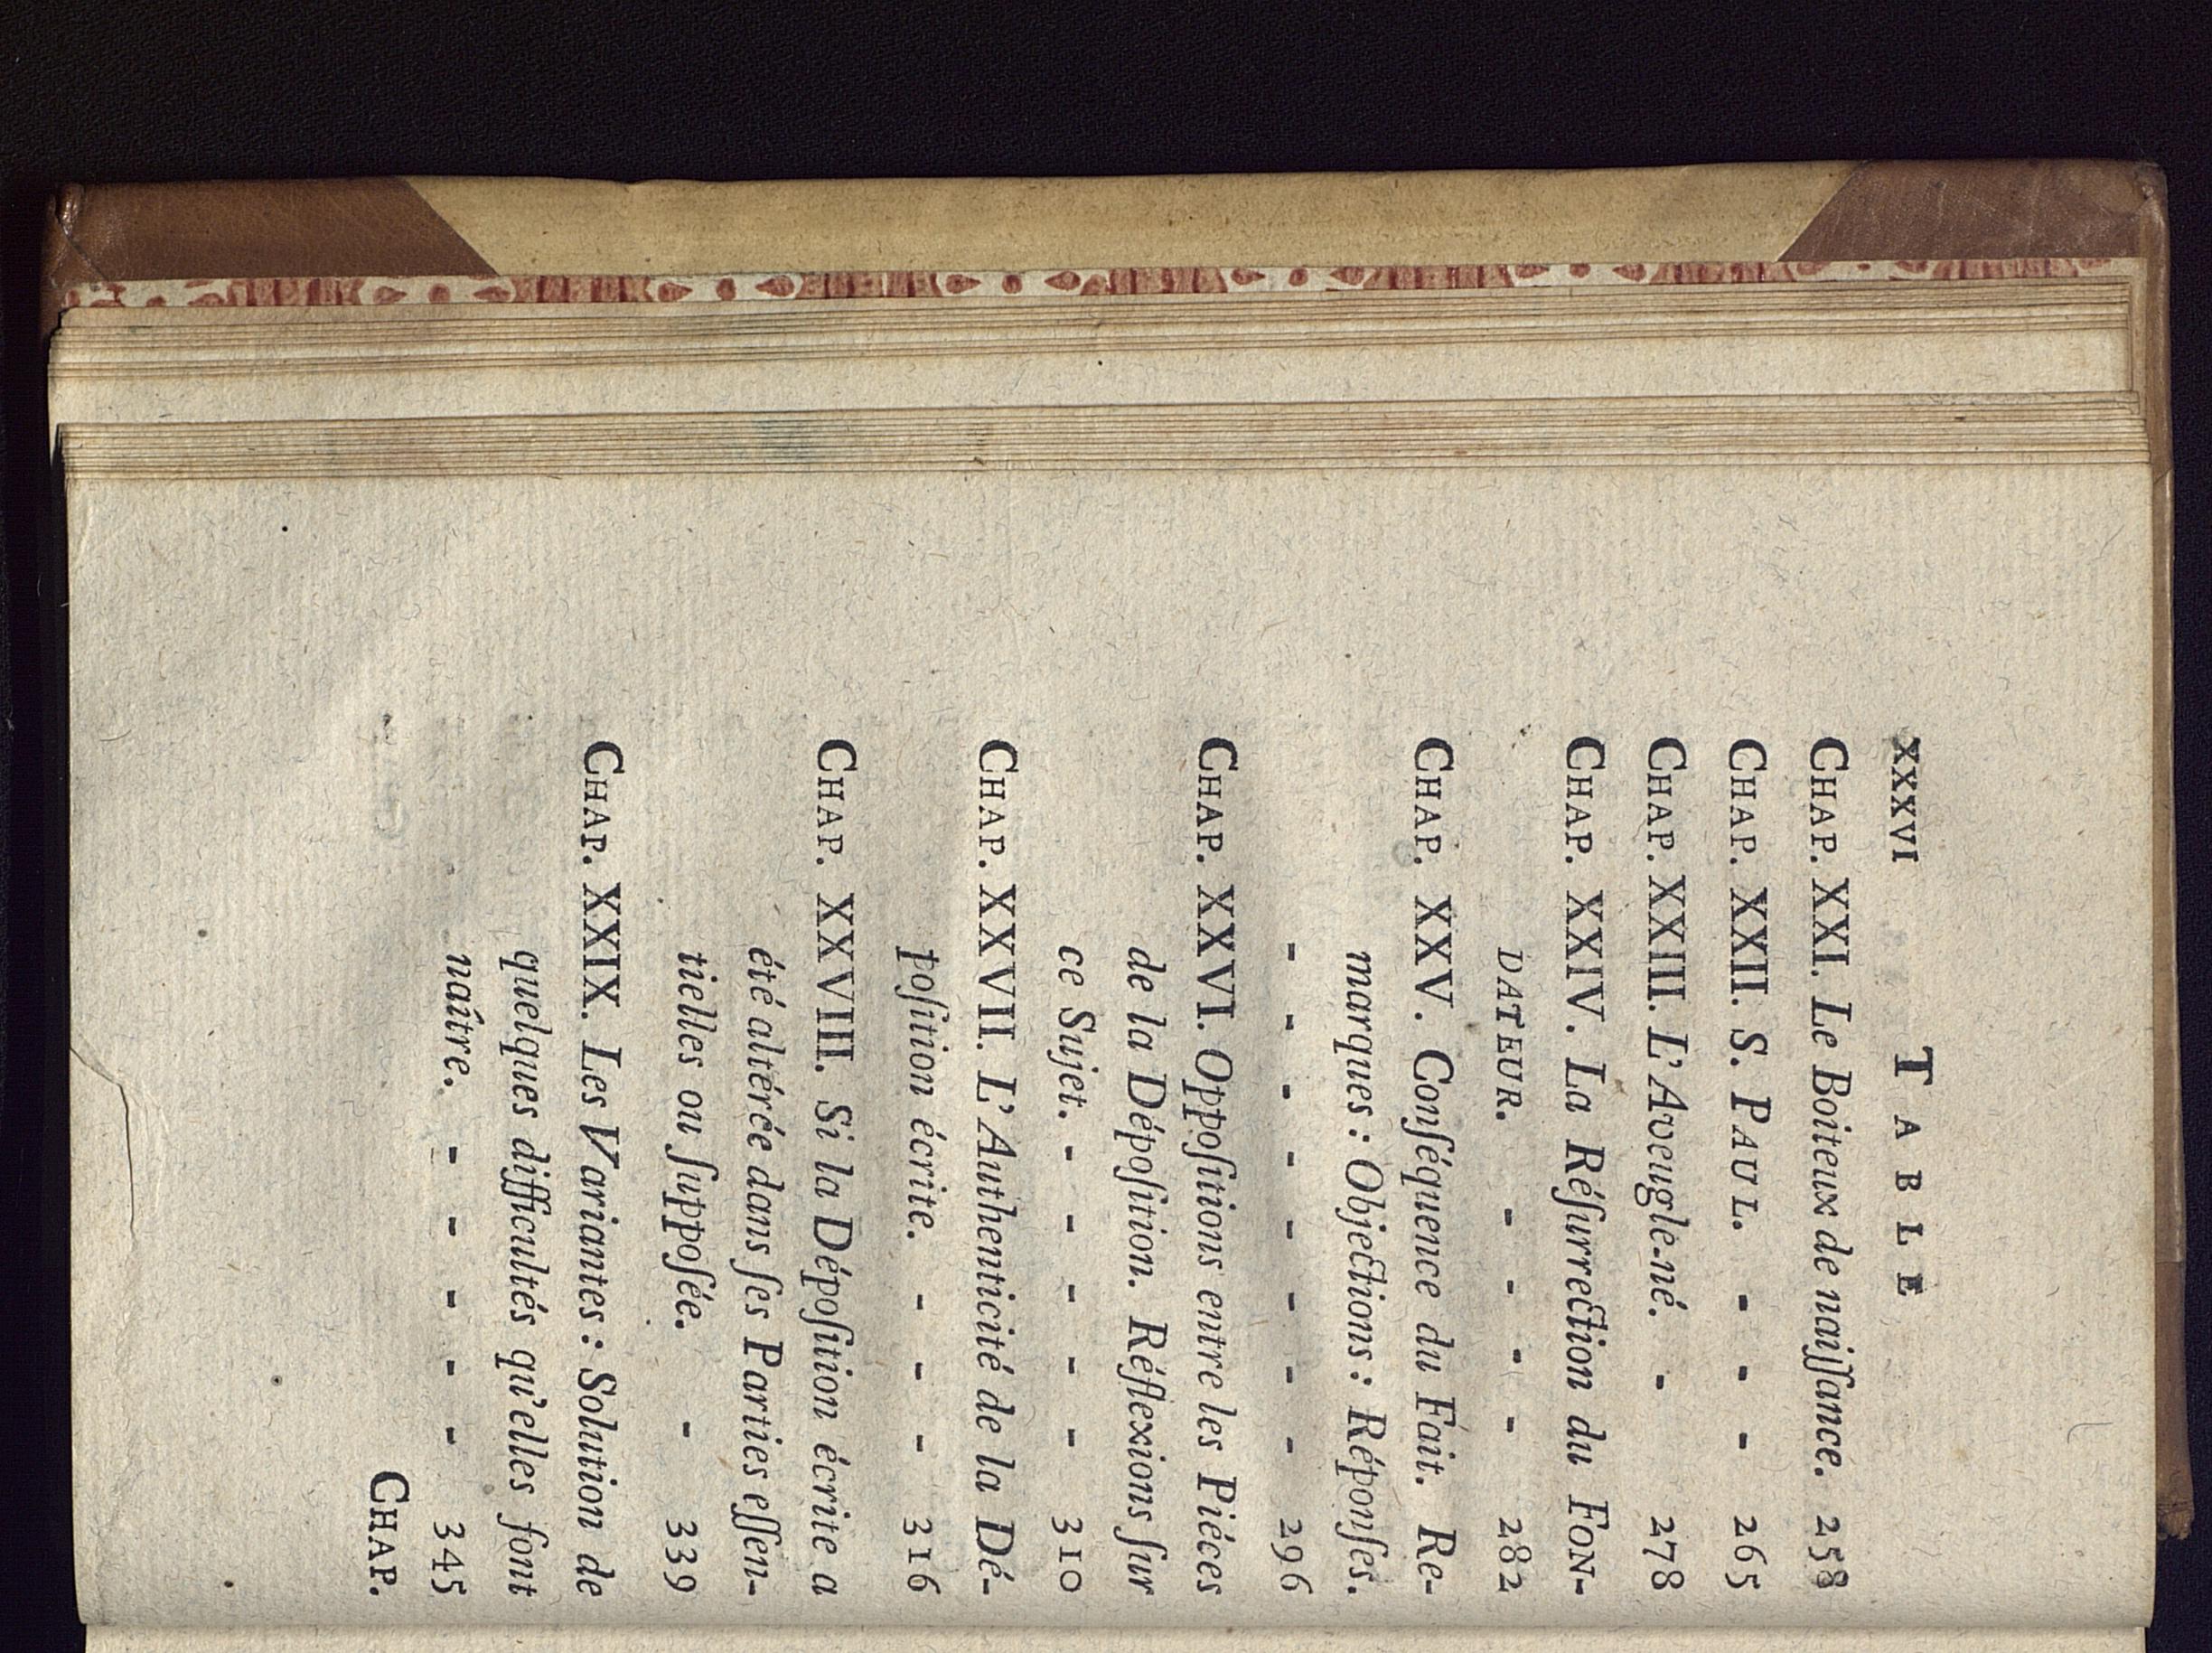 XXXVI TABLE
CHAP. XXI. Le Boiteux de naiſſance. 258
CHAP. XXII. S. PAUL. - - - 265
CHAP. XXIII. L'Aveugle-né. - 278
CHAP. XXIV. La Réſurrection du FON-
DATEUR. - - - - 282
CHAP. XXV. Conſéquence du Fait. Re-
marques: Objections: Réponſes.
- - - - - - - - 296
CHAP. XXVI. Oppoſitions entre les Piéces
de la Dépoſition. Réflexions ſur
ce Sujet. - - - - - 310
CHAP. XXVII. L'Authenticité de la Dé-
poſition écrite. - - - 316
CHAP. XXVIII. Si la Dépoſition écrite a
été altérée dans ſes Parties eſſen-
tielles ou ſuppoſée. - 339
CHAP. XXIX. Les Variantes: Solution de
quelques difficultés qu'elles font
naître. - - - - - 345
CHAP.